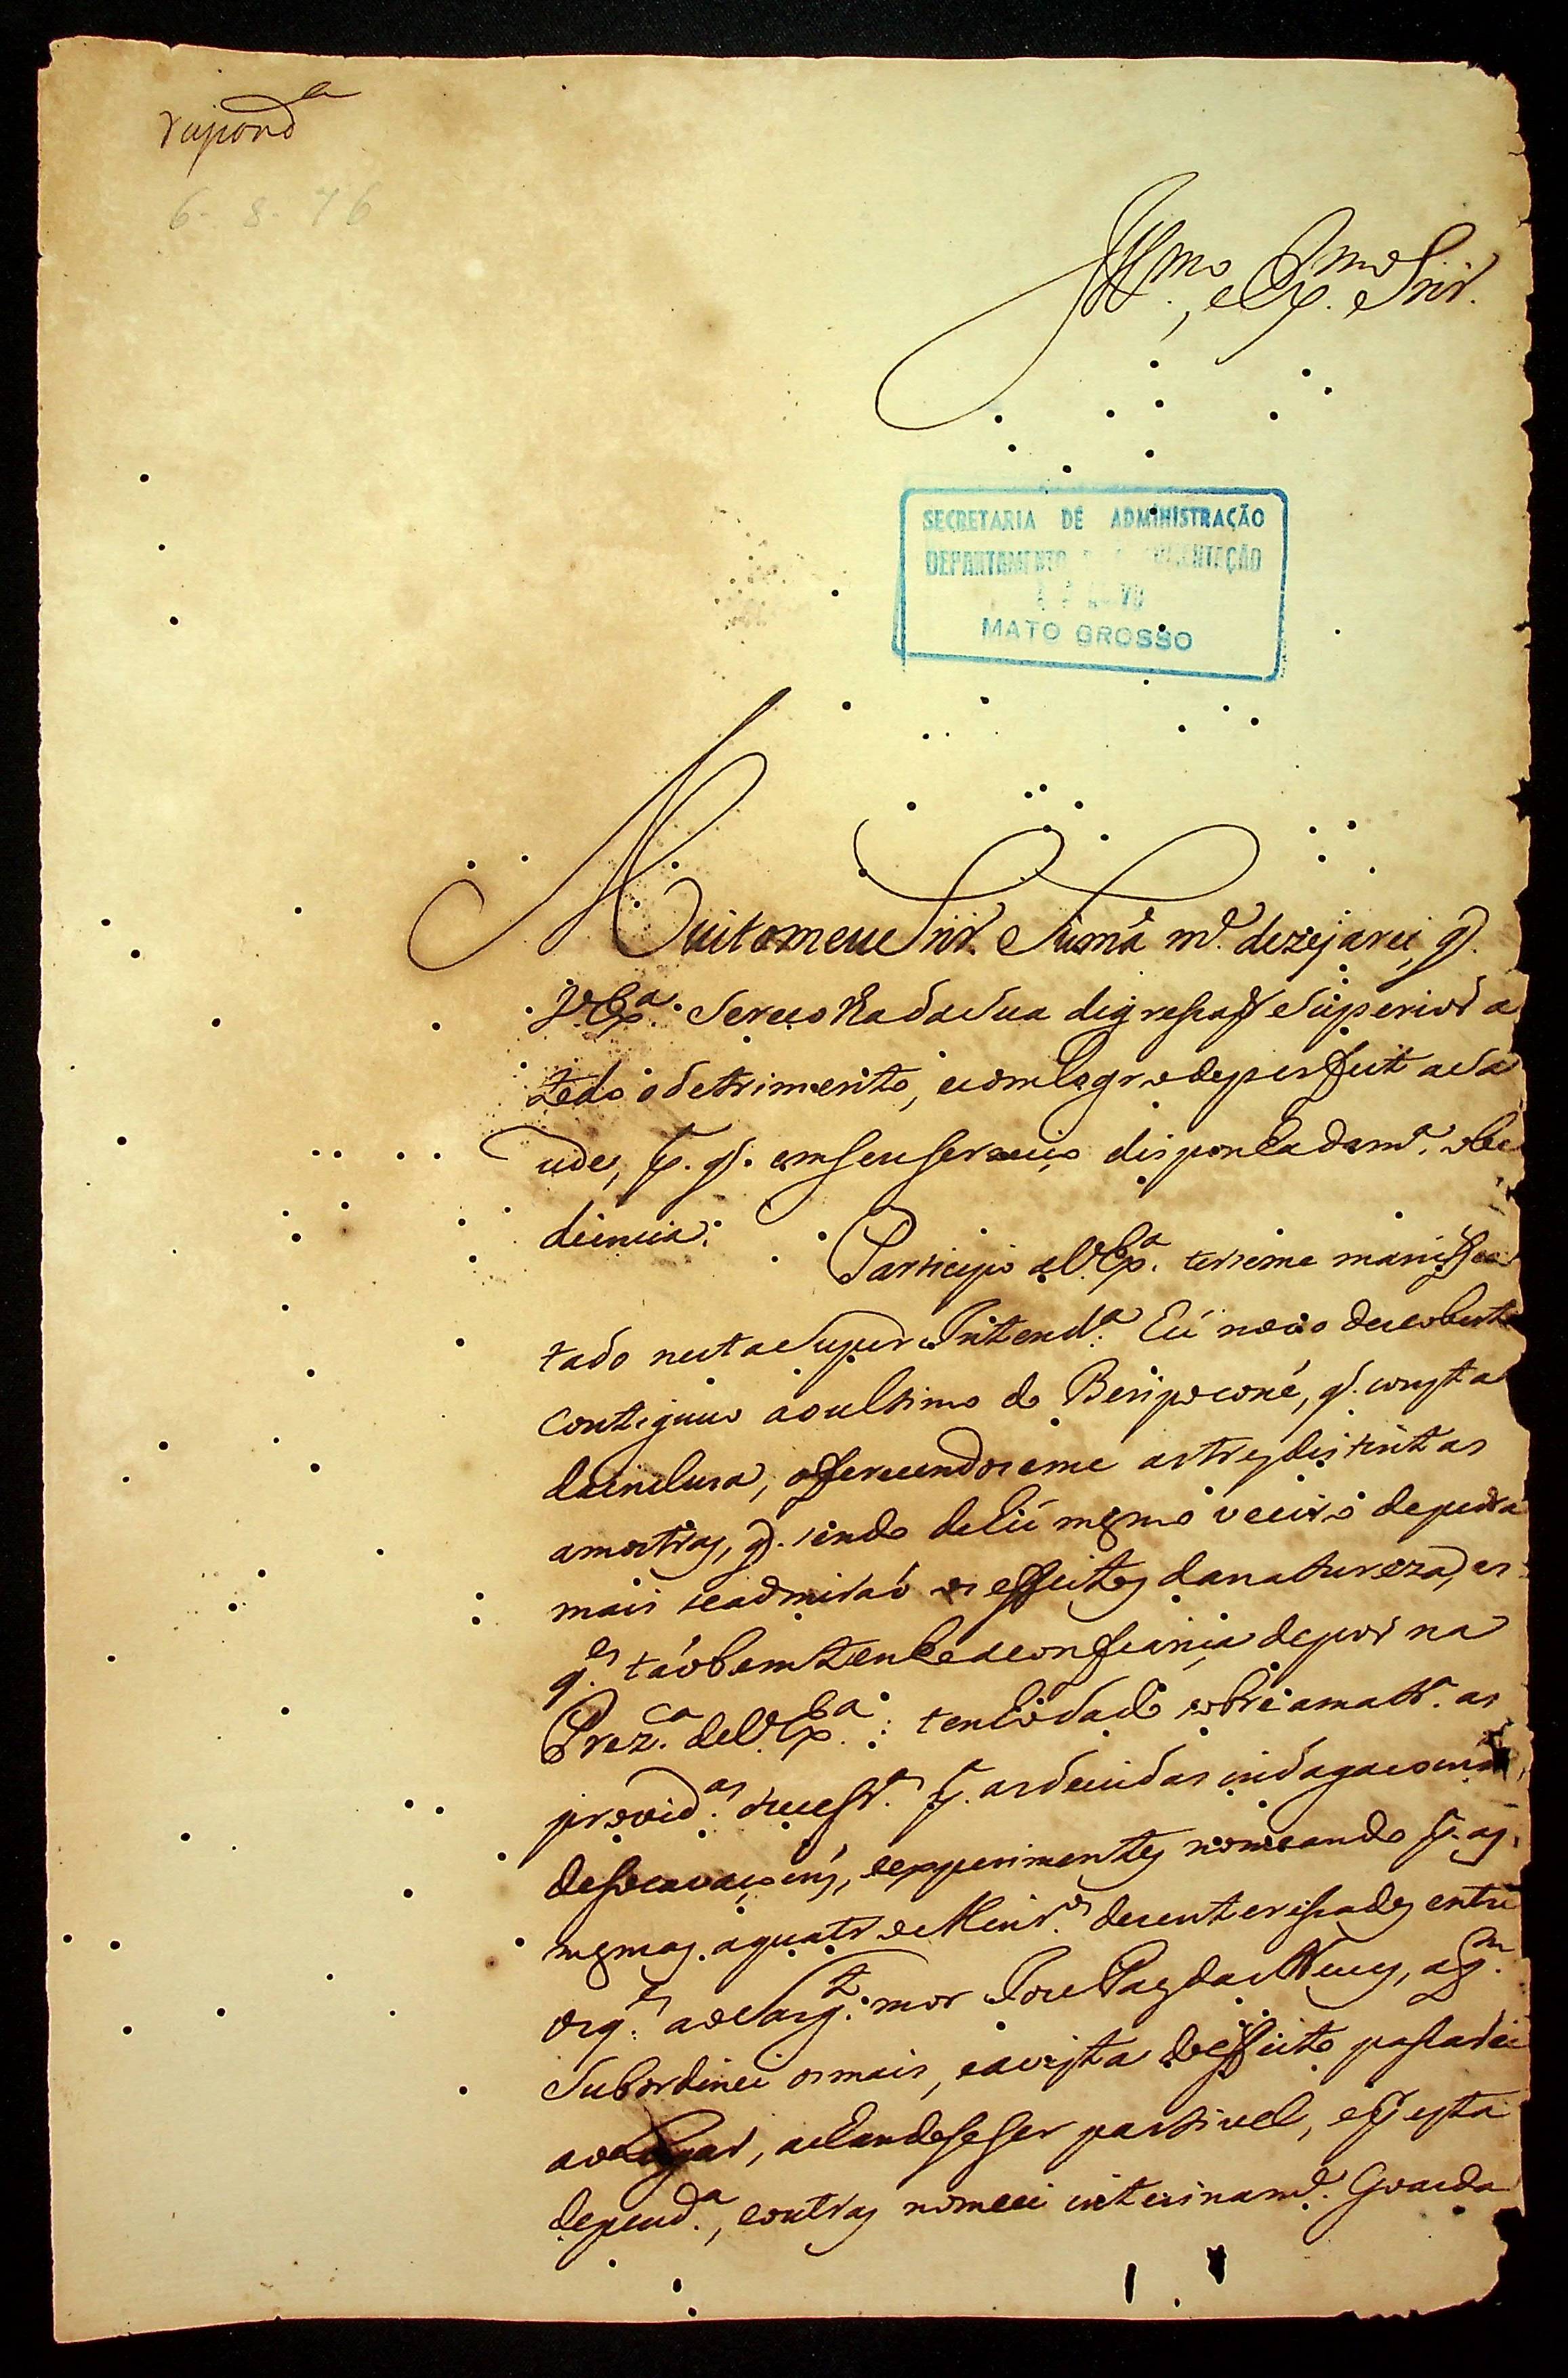 respond.da
6-8-76
Illmo., e Exmo. Snr.
SECRETARIA DE ADMINISTRAÇÃO
DEPARTAMENTO
MATO GROSSO
Muito meu Snr. Suma me. dezejarei, q.
V. Exa. Sereco lhada Sua digressaõ Superior a
todo o detrimento, e com logro de perfeita Sa
ude, pa. q. em seu Serviço disponha da ma. obe
diencia.
Participo a V. Exa. terseme manifes
tado nesta Super Intenda. hú novo descoberto
contiguuo ao ultimo de Beripoconé, q. consta
da incluza, offerecendoseme as tres distintas
amostras, q. sendo de hú mesmo veeiro de pedra
mais se admiraõ os effeitos da natureza, as
qes. taõbem tenho a confiança de por na
Preza.ca de V. Exa.: tenho dado sobre a matra. as
providas. necessas. pa. as devidas indagacoens,
desocavaçoens, e experimentos nomeando pa. as
mesmas a quatro Minros. desenteressados entre
os qes. ao Sargto. mor Joze Paes das Neves, a qm.
Subordinei os mais, e a vista do effeito passarei
ao Lugar, achandose ser partivel, e pa. esta
depenca., e outras nomeei interinamte. Goarda